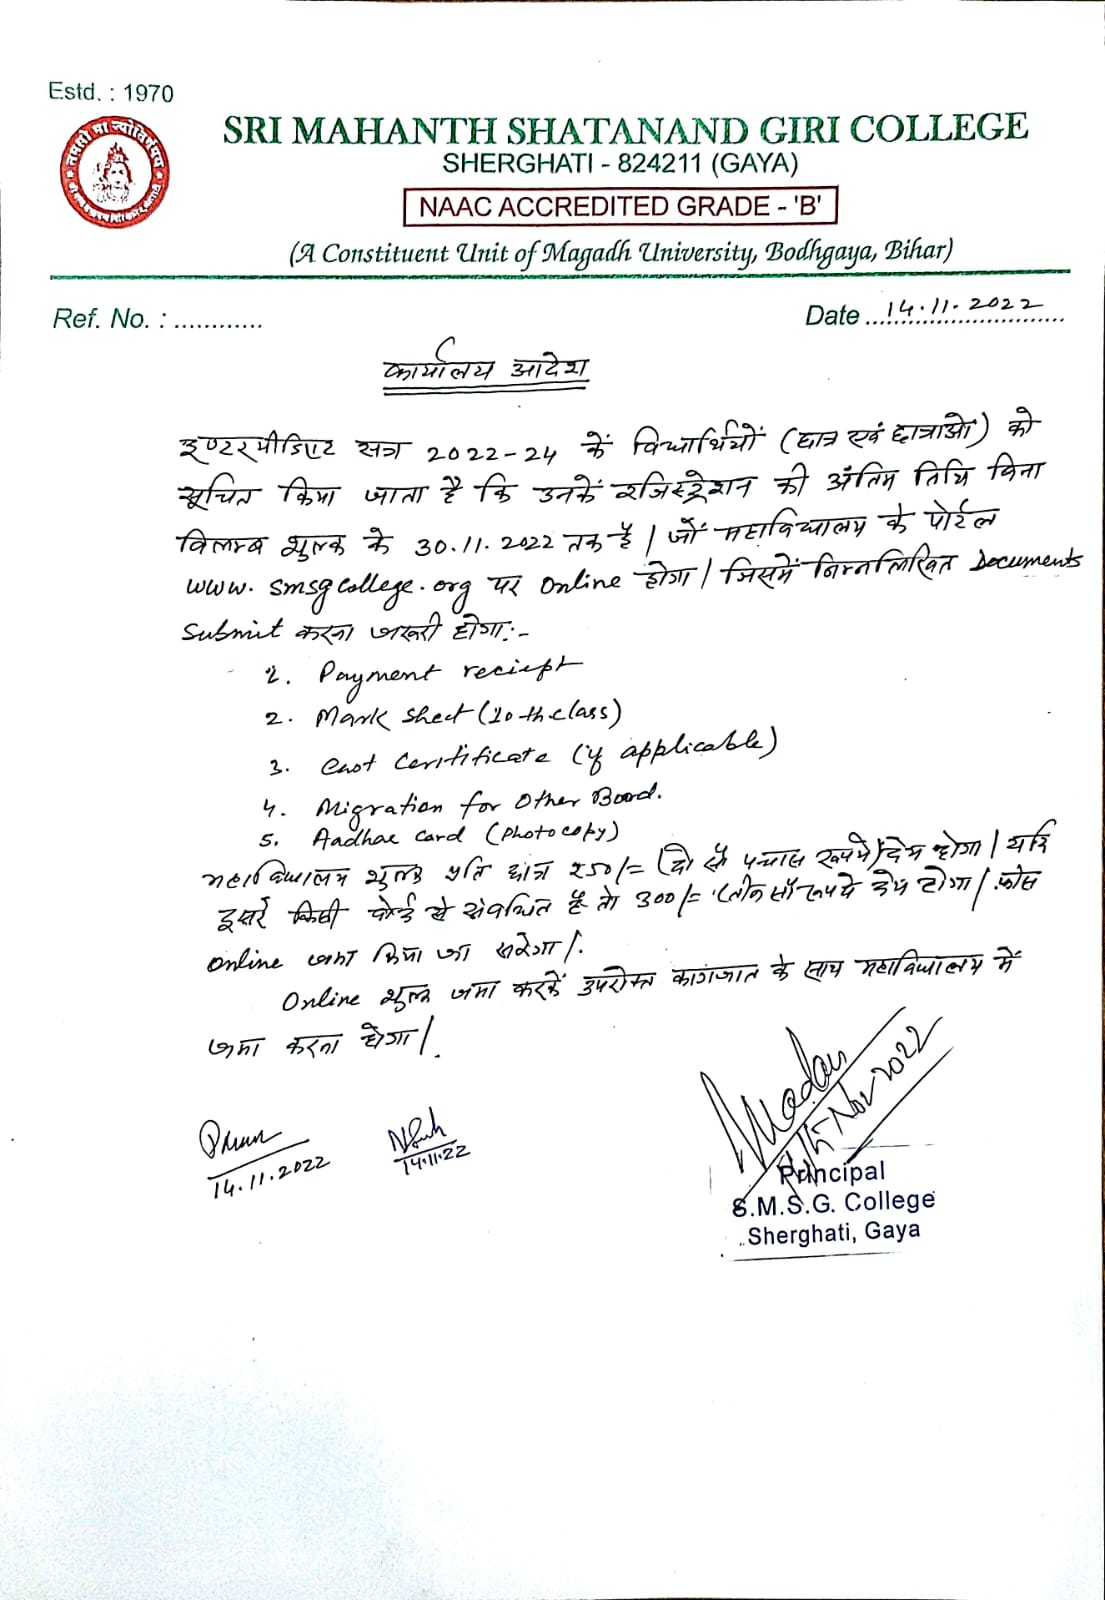 Estd. : 1970
SRI MAHANTH SHATANAND GIRI COLLEGE
SHERGHATI - 824211 (GAYA)
NAAC ACCREDITED GRADE - 'B'
(A Constituent Unit of Magadh University, Bodhgaya, Bihar)
Ref. No. : ............
Date ...14.11.2022...
कार्यालय आदेश
इण्टरमीडिएट सत्र 2022-24 के विद्यार्थियों (छात्र एवं छात्राओं) को
सूचित किया जाता है कि उनके रजिस्ट्रेशन की अंतिम तिथि बिना
विलम्ब शुल्क के 30.11.2022 तक है। जो महाविद्यालय के पोर्टल
www.smsgcollege.org पर online होगा। जिसमें निम्नलिखित Documents
submit करना जरूरी होगा:-
1. Payment reciept
2. Mark sheet (10th class)
3. cast certificate (if applicable)
4. Migration for Other Board.
5. Aadhar card (photocopy)
महाविद्यालय शुल्क प्रति छात्र 250/= (दो सौ पचास रूपये) देय होगा। यदि
दूसरे किसी बोर्ड से संबंधित है तो 300/= (तीन सौ रूपये देय होगा। फीस
online जमा किया जा सकेगा।
Online शुल्क जमा करके उपरोक्त कागजात के साथ महाविद्यालय में
जमा करना होगा।
14.11.2022
14.11.22
Nov 2022
Principal
S.M.S.G. College
Sherghati, Gaya